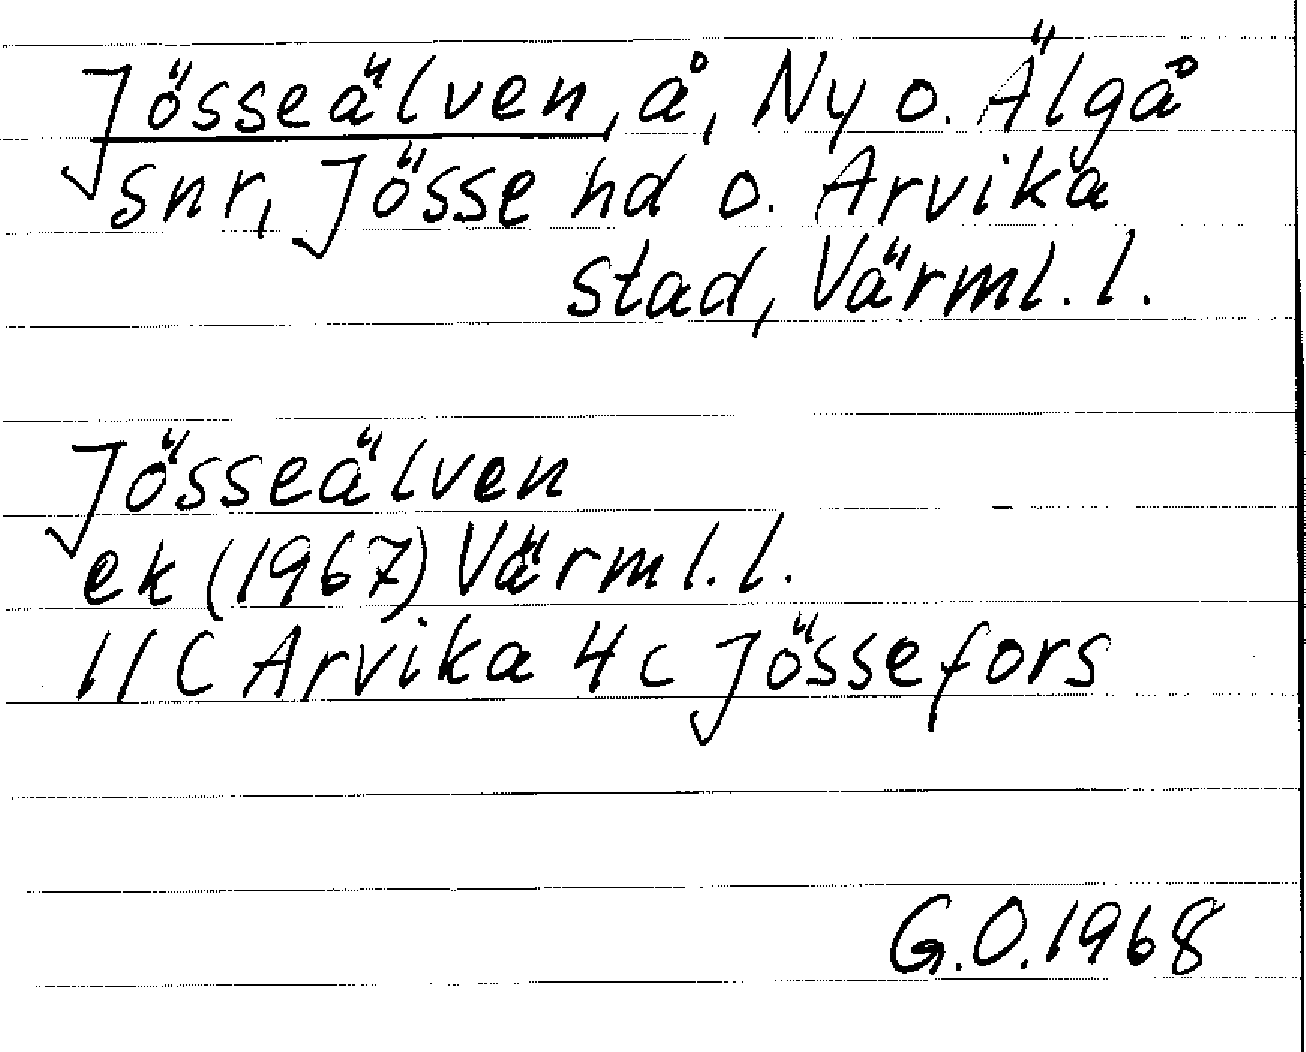 Jösseälven, å, Ny o. Älgå
snr, Jösse hd o. Arvika
stad, Värml. l.
Jösseälven
ek (1967) Värml. l.
11C Arvika 4c Jössefors
G.O. 1968